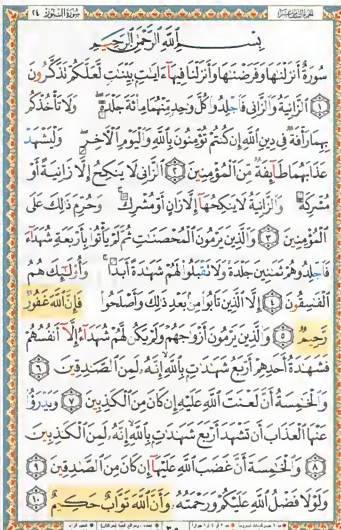 سورة النور ٢٤
بِسْمِ اللَّهِ الرَّحْمَٰنِ الرَّحِيمِ
سُورَةٌ أَنزَلْنَٰهَا وَفَرَضْنَٰهَا وَأَنزَلْنَا فِيهَآ ءَايَٰتٍۭ بَيِّنَٰتٍ لَّعَلَّكُمْ تَذَكَّرُونَ
۝١ ٱلزَّانِيَةُ وَٱلزَّانِى فَٱجْلِدُوا۟ كُلَّ وَٰحِدٍ مِّنْهُمَا مِا۟ئَةَ جَلْدَةٍ ۖ وَلَا تَأْخُذْكُم
بِهِمَا رَأْفَةٌ فِى دِينِ ٱللَّهِ إِن كُنتُمْ تُؤْمِنُونَ بِٱللَّهِ وَٱلْيَوْمِ ٱلْءَاخِرِ ۖ وَلْيَشْهَدْ
عَذَابَهُمَا طَآئِفَةٌ مِّنَ ٱلْمُؤْمِنِينَ ۝٢ ٱلزَّانِى لَا يَنكِحُ إِلَّا زَانِيَةً أَوْ
مُشْرِكَةً وَٱلزَّانِيَةُ لَا يَنكِحُهَآ إِلَّا زَانٍ أَوْ مُشْرِكٌ ۚ وَحُرِّمَ ذَٰلِكَ عَلَى
ٱلْمُؤْمِنِينَ ۝٣ وَٱلَّذِينَ يَرْمُونَ ٱلْمُحْصَنَٰتِ ثُمَّ لَمْ يَأْتُوا۟ بِأَرْبَعَةِ شُهَدَآءَ
فَٱجْلِدُوهُمْ ثَمَٰنِينَ جَلْدَةً وَلَا تَقْبَلُوا۟ لَهُمْ شَهَٰدَةً أَبَدًا ۚ وَأُو۟لَٰٓئِكَ هُمُ
ٱلْفَٰسِقُونَ ۝٤ إِلَّا ٱلَّذِينَ تَابُوا۟ مِنۢ بَعْدِ ذَٰلِكَ وَأَصْلَحُوا۟ فَإِنَّ ٱللَّهَ غَفُورٌ
رَّحِيمٌ ۝٥ وَٱلَّذِينَ يَرْمُونَ أَزْوَٰجَهُمْ وَلَمْ يَكُن لَّهُمْ شُهَدَآءُ إِلَّآ أَنفُسُهُمْ
فَشَهَٰدَةُ أَحَدِهِمْ أَرْبَعُ شَهَٰدَٰتٍۭ بِٱللَّهِ ۙ إِنَّهُۥ لَمِنَ ٱلصَّٰدِقِينَ ۝٦
وَٱلْخَٰمِسَةُ أَنَّ لَعْنَتَ ٱللَّهِ عَلَيْهِ إِن كَانَ مِنَ ٱلْكَٰذِبِينَ ۝٧ وَيَدْرَؤُا۟
عَنْهَا ٱلْعَذَابَ أَن تَشْهَدَ أَرْبَعَ شَهَٰدَٰتٍۭ بِٱللَّهِ ۙ إِنَّهُۥ لَمِنَ ٱلْكَٰذِبِينَ
۝٨ وَٱلْخَٰمِسَةَ أَنَّ غَضَبَ ٱللَّهِ عَلَيْهَآ إِن كَانَ مِنَ ٱلصَّٰدِقِينَ ۝٩
وَلَوْلَا فَضْلُ ٱللَّهِ عَلَيْكُمْ وَرَحْمَتُهُۥ وَأَنَّ ٱللَّهَ تَوَّابٌ حَكِيمٌ ۝١٠